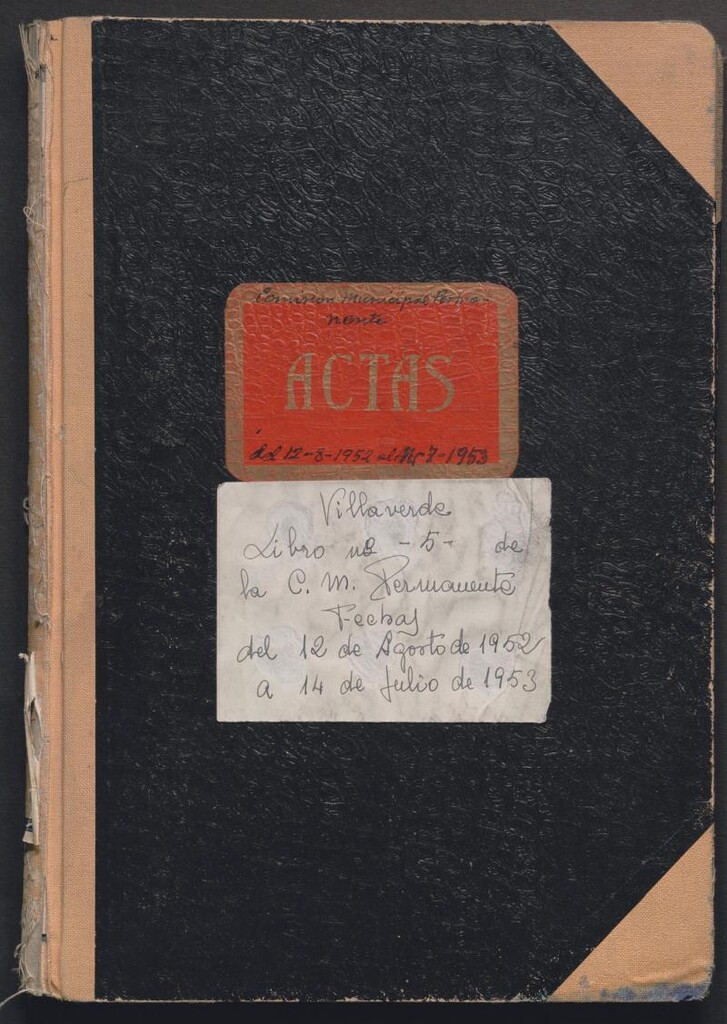 Comision Municipal Perma-
nente
ACTAS
del 12-8-1952 al 14-7-1953
Villaverde
Libro nº -5- de
la C. M. Permanente
Fechas
del 12 de Agosto de 1952
a 14 de Julio de 1953